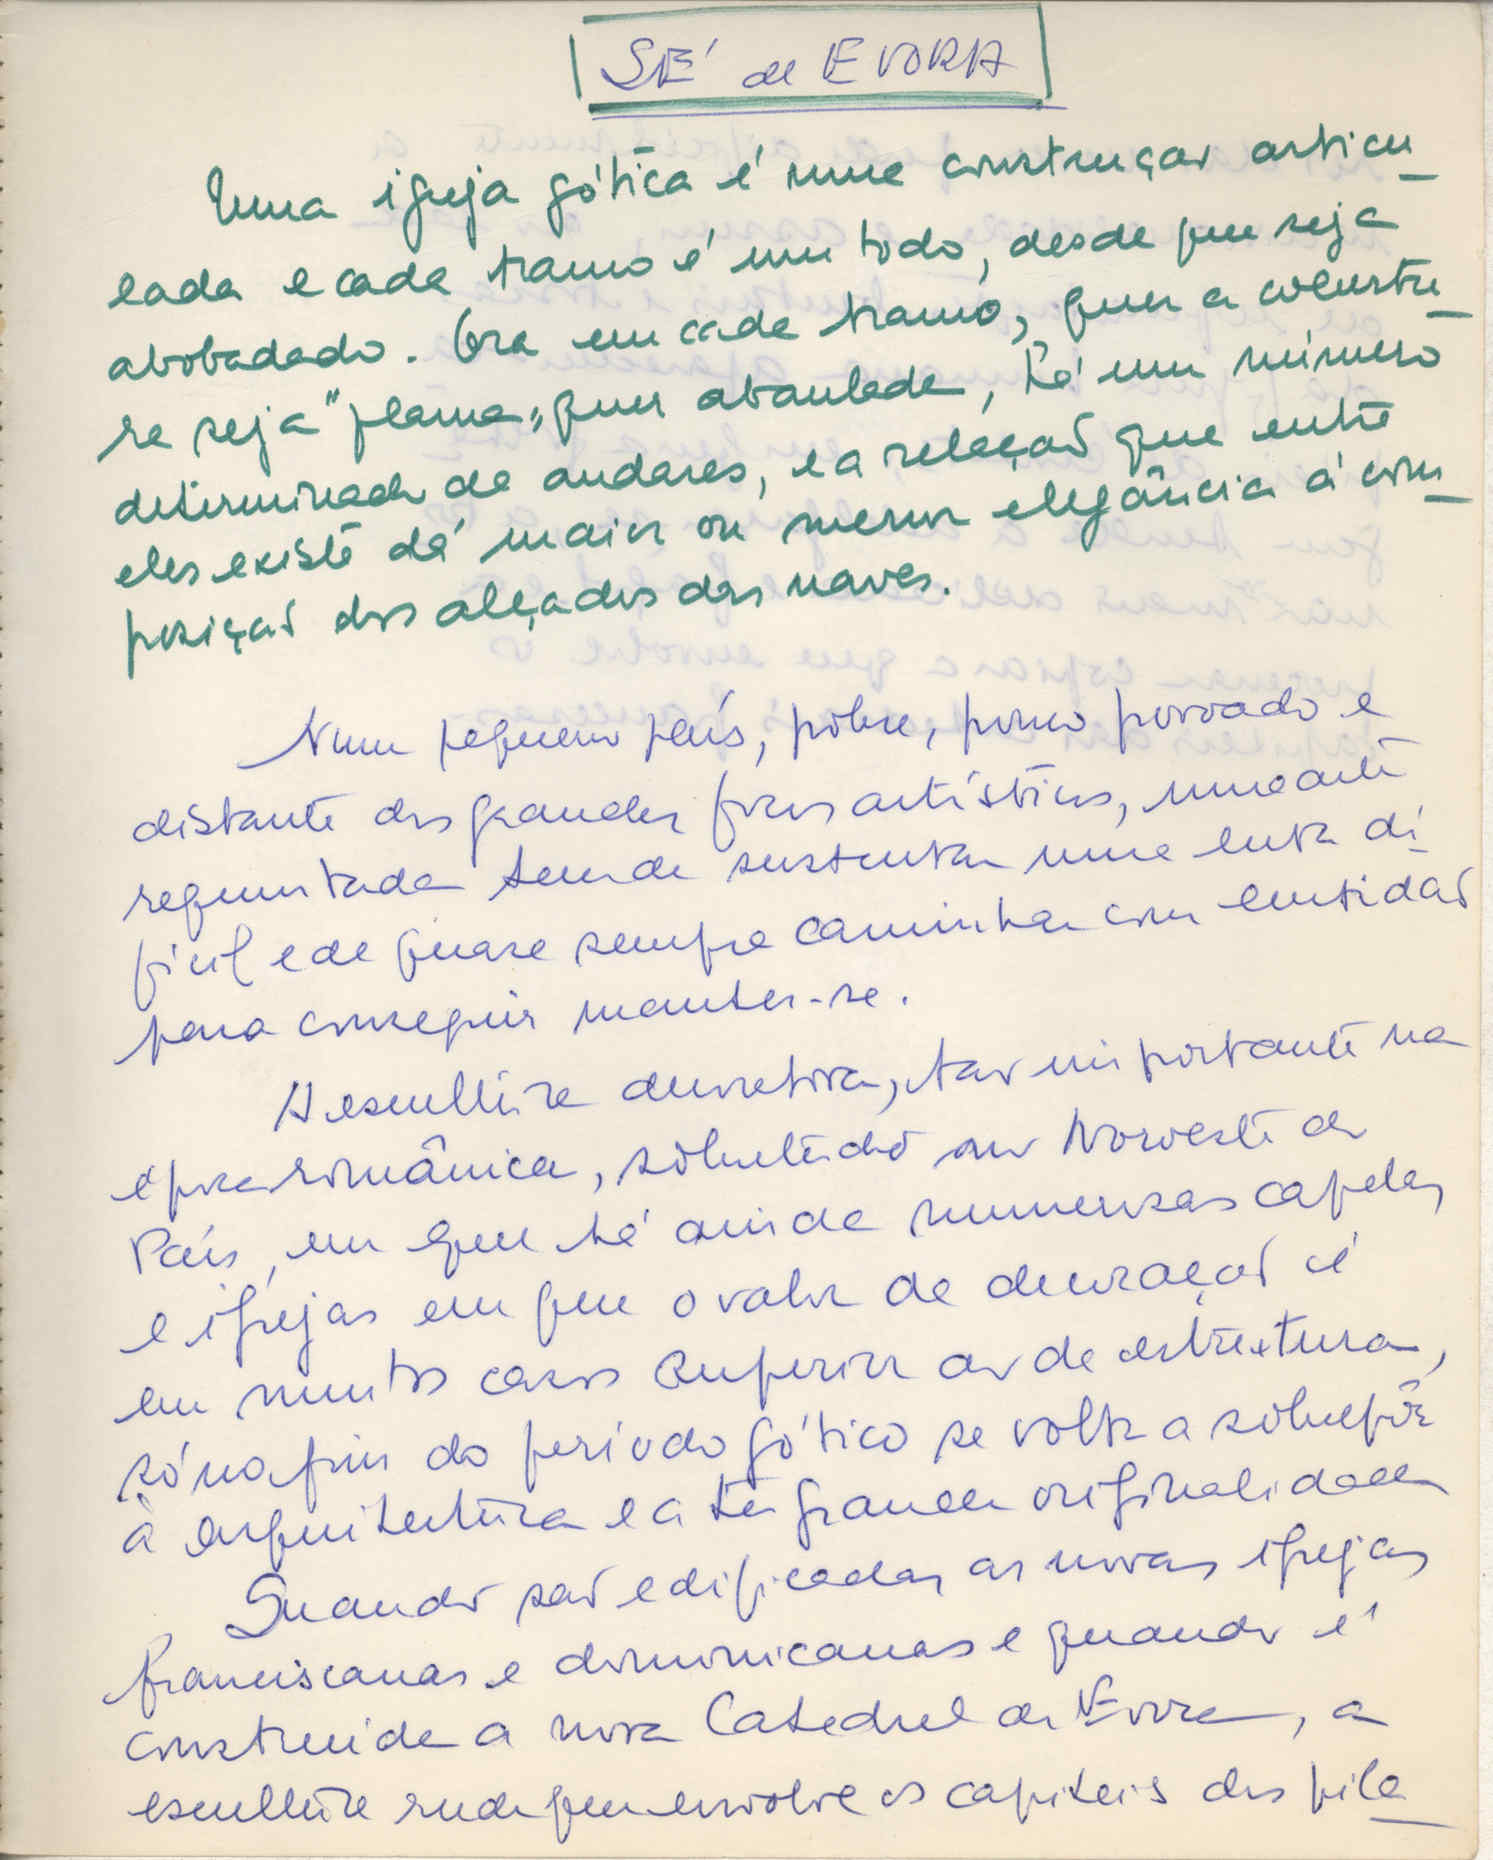 SÉ de EVORA
Uma igreja gótica é uma construção articu_
lada e cada tramo é um todo, desde que seja
abobadado. Ora em cada tramo, quer a cobertu_
ra seja "plana", quer abaulada, há um número
determinado de andares, e a relação que entre
eles existe dá maior ou menor elegância à com_
posição dos alçados das naves.
Num pequeno país, pobre, pouco povoado e
distante dos grandes focos artísticos, uma arte
requintada tem de sustentar uma luta di_
fícil e de quase sempre caminhar com lentidão
para conseguir manter-se.
A escultura decorativa, tão importante na
época românica, sobretudo no Noroeste do
País, em que há ainda numerosas capelas
e igrejas em que o valor de decoração é
em muitos casos superior ao de estrutura,
só no fim do período gótico se volta a sobrepôr
à arquitectura e a ter grande originalidade
Quando são edificadas as novas igrejas
franciscanas e dominicanas e quando é
construida a nova Catedral de Evora, a
escultura rude que envolve os capiteis dos pila_